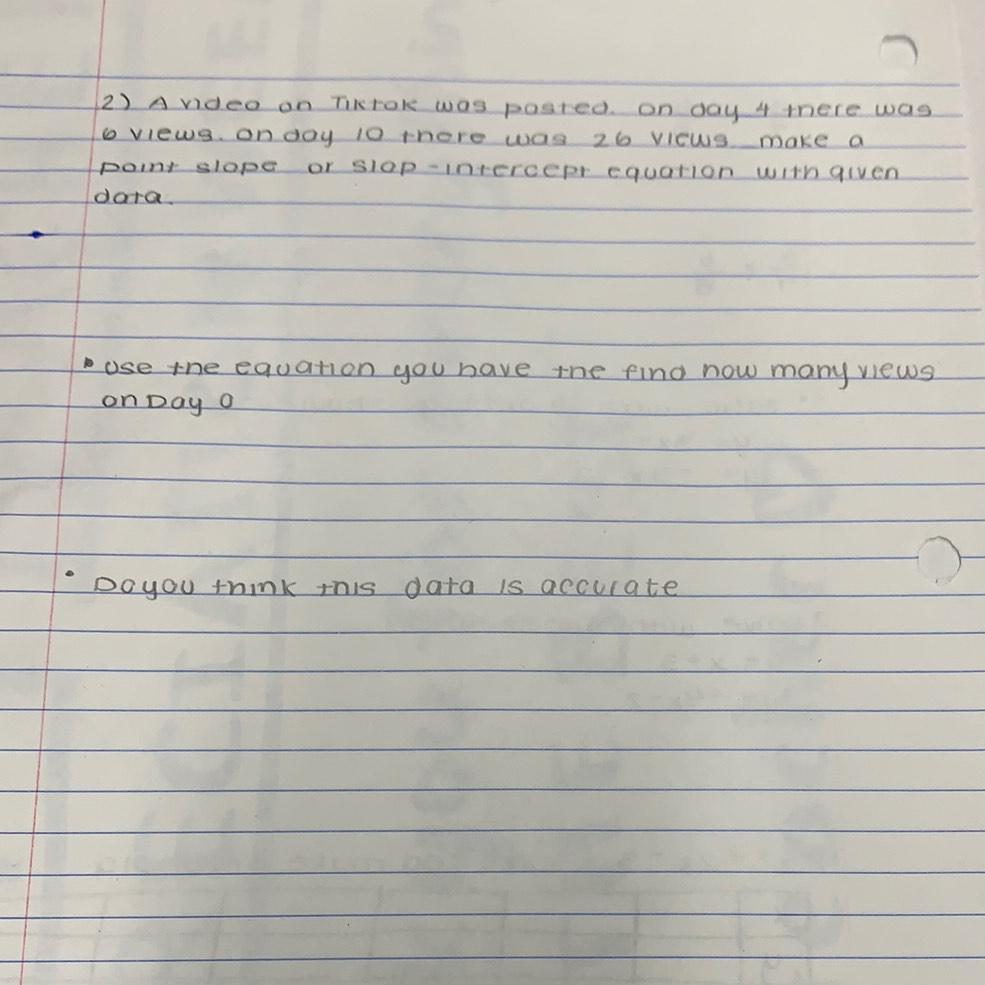 2) A video on TikTok was posted. on day 4 there was
6 views. on day 10 there was 26 views make a
point slope or slop-intercept equation with given
data.
• use the equation you have the find how many views
on Day 0
• Do you think this data is accurate